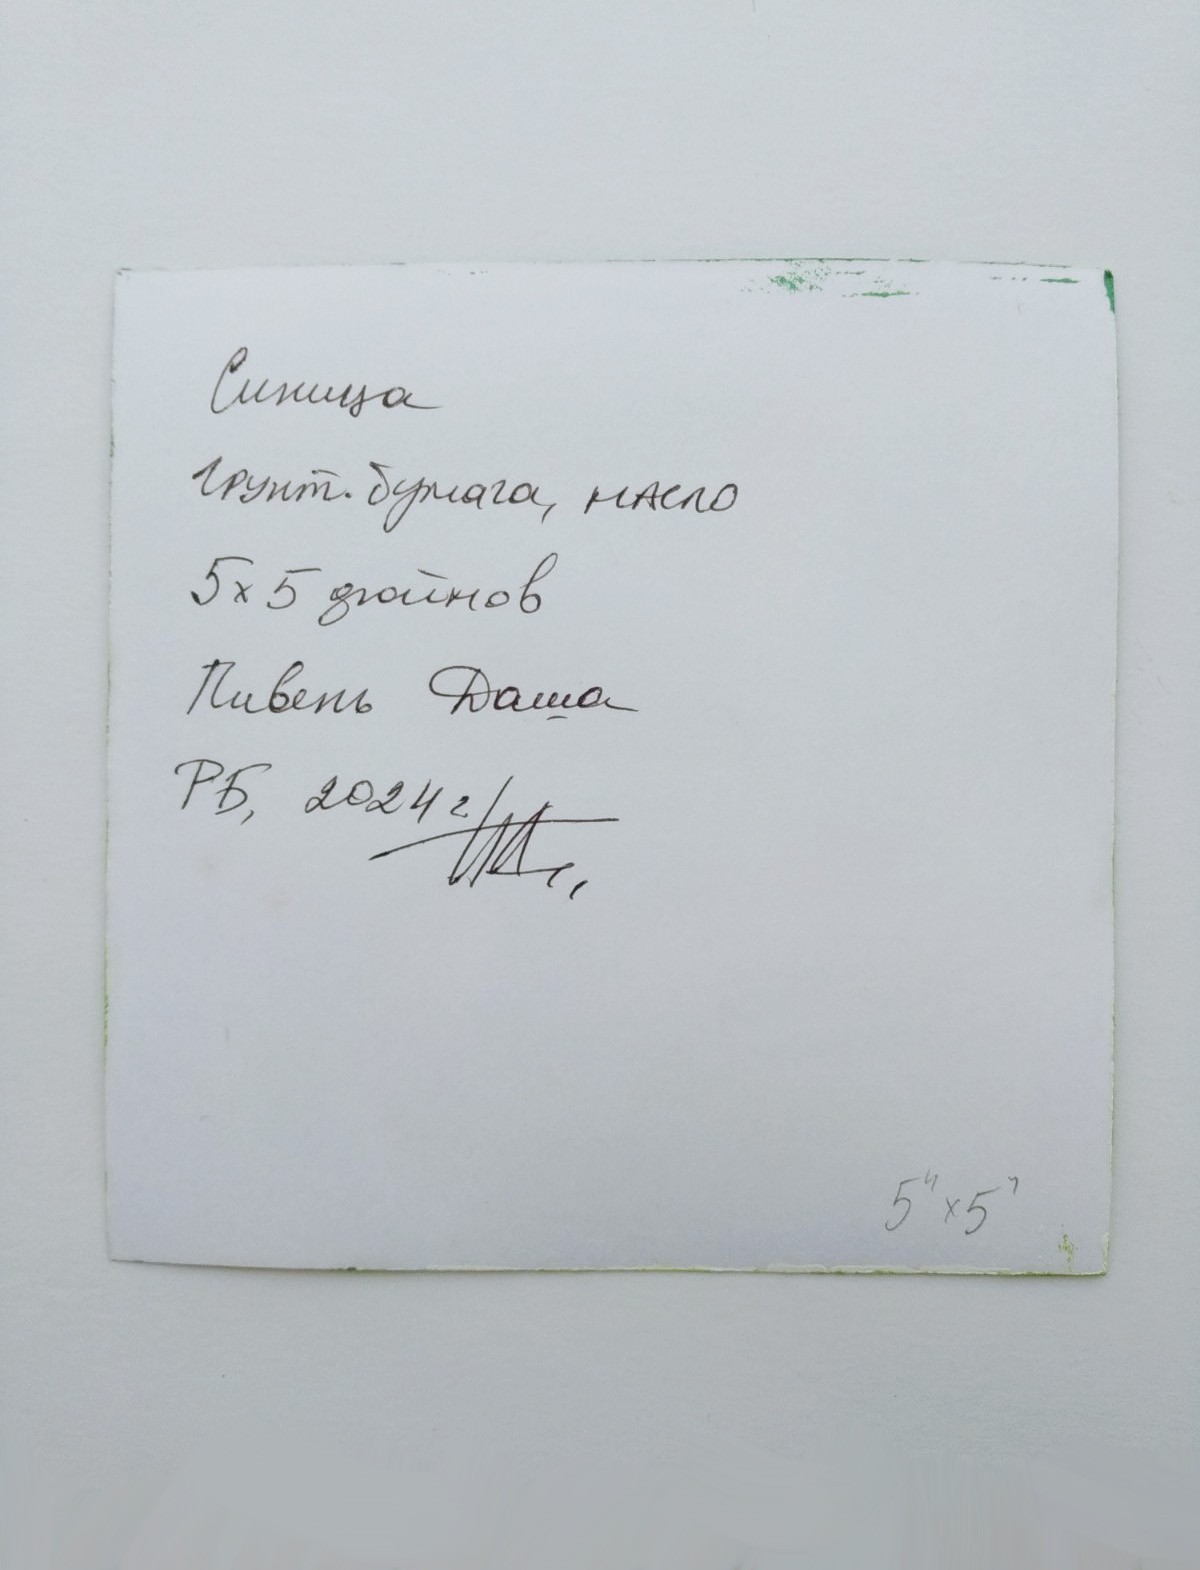 Синица
Грунт. бумага, масло
5х5 дюймов
Пивень Даша
РБ, 2024 г.
5"х5"